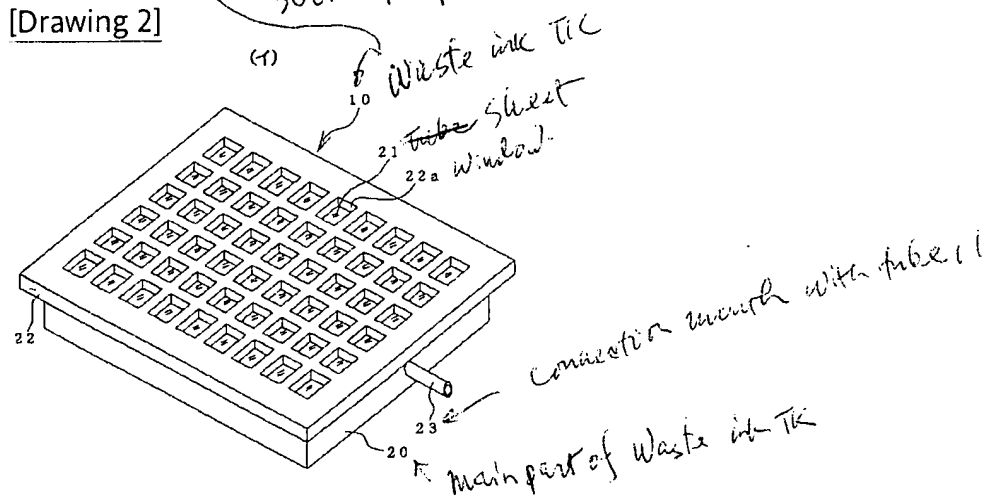 [Drawing 2]
(イ)
10 Waste ink TK
21 tube sheet
22a window
connection mouth with tube 11
22
23
20
main part of Waste ink TK